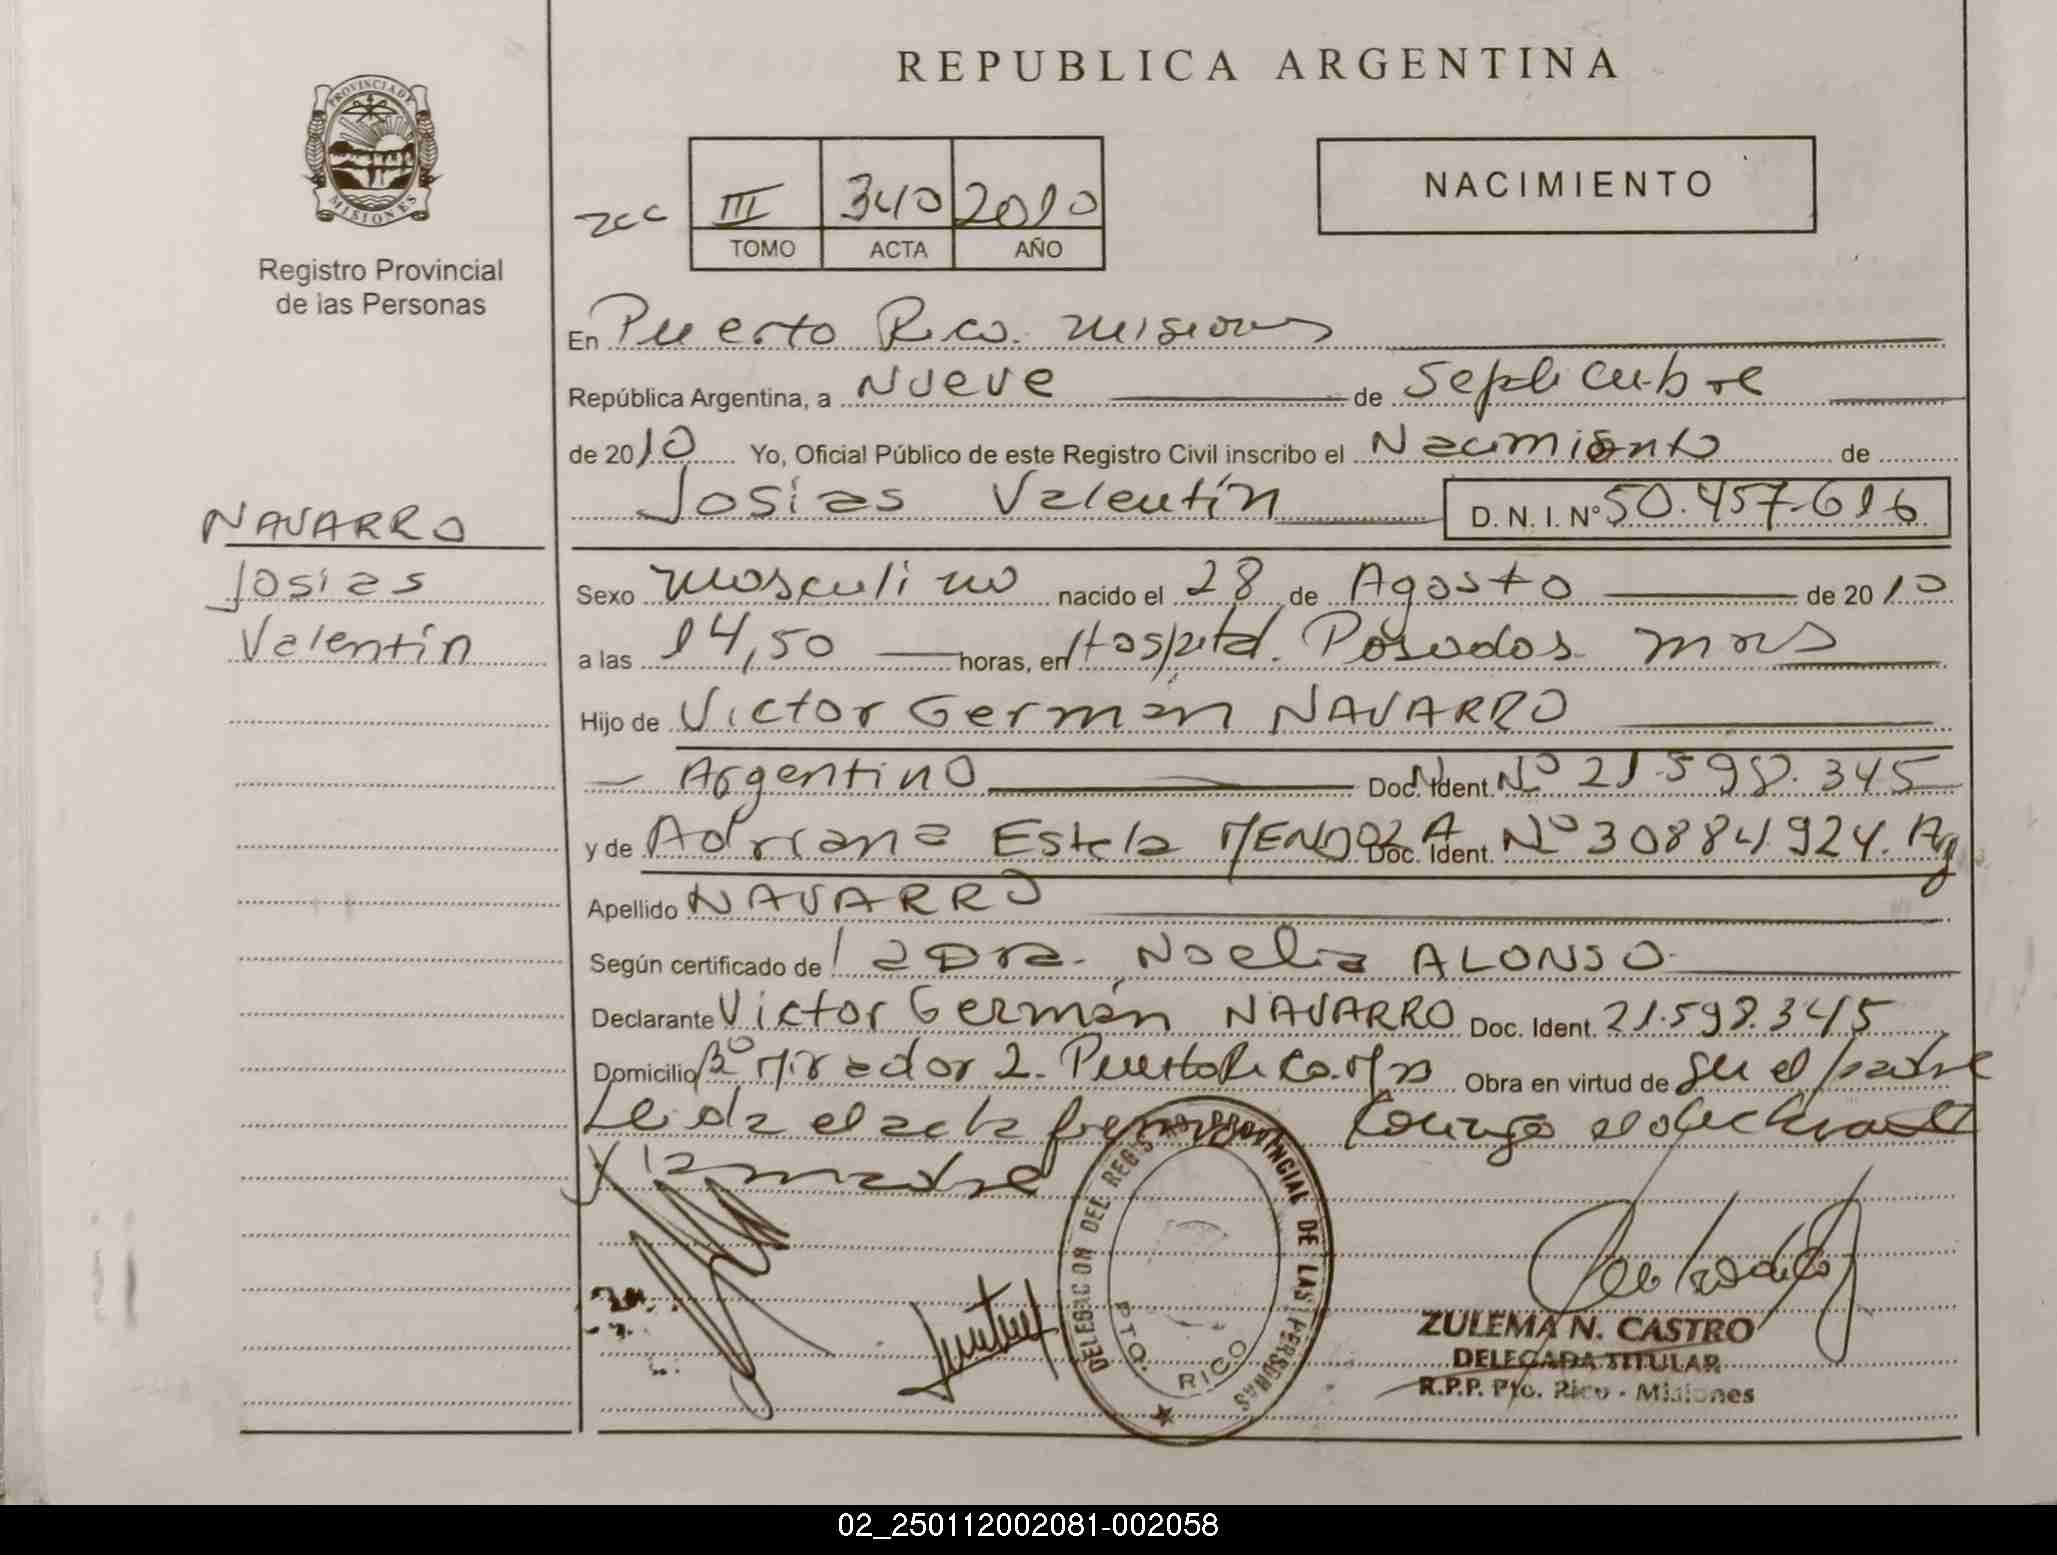 REPUBLICA ARGENTINA
PROVINCIA DE MISIONES
Registro Provincial
de las Personas
III 340 2010
TOMO ACTA AÑO
NACIMIENTO
En Puerto Rico. Misiones
República Argentina, a Nueve de Septiembre
de 2010 Yo, Oficial Público de este Registro Civil inscribo el Nacimiento de
Josias Valentín D. N. I. Nº 50.457.616
NAVARRO
Josias
Valentín
Sexo Masculino nacido el 28 de Agosto de 2010
a las 14,50 horas, en Hospital. Posadas Mnes
Hijo de Victor Germán NAVARRO
Argentino Doc. Ident. Nº 21.598.345
y de Adriana Estela MENDOZA Doc. Ident. Nº 30884924. Arg
Apellido NAVARRO
Según certificado de la Dra. Noelia ALONSO
Declarante Victor Germán NAVARRO Doc. Ident. 21.598.345
Domicilio Bº Mirador 2. Puerto Rico. Mns Obra en virtud de ser el padre
Leida el acta firman conmigo el declarante
y la madre
DELEGACION DEL REGISTRO PROVINCIAL DE LAS PERSONAS
PTO. RICO
ZULEMA N. CASTRO
DELEGADA TITULAR
R.P.P. Pto. Rico - Misiones
02_250112002081-002058